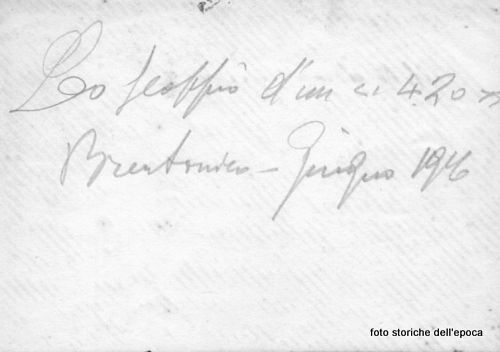 Lo scoppio d'un « 420 »
Brentonico - Giugno 1916
foto storiche dell'epoca